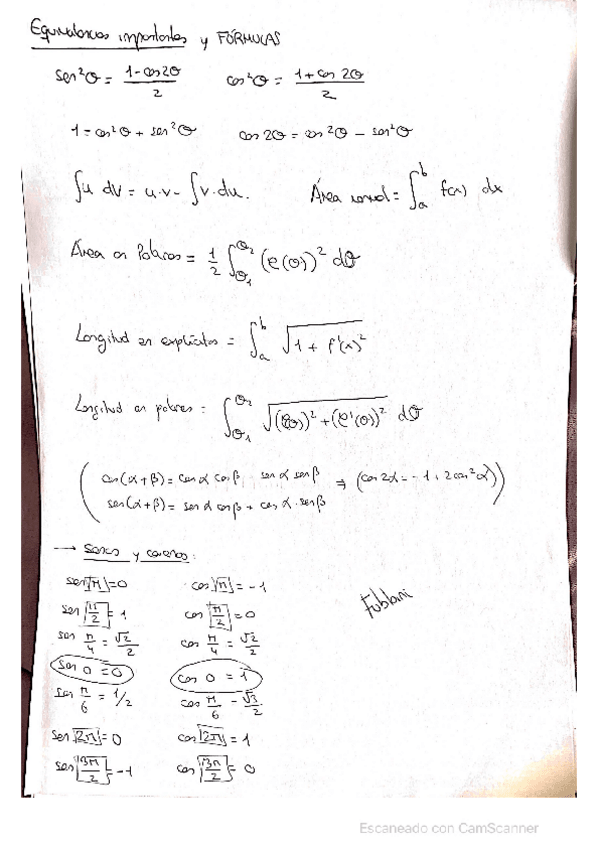 Equivalencias importantes y FÓRMULAS
sen²θ = (1 - cos2θ)/2    cos²θ = (1 + cos 2θ)/2
1 = cos²θ + sen²θ    cos 2θ = cos²θ - sen²θ
∫u dv = u·v - ∫v·du.    Área normal = ∫_a^b f(x) dx
Área en Polares = 1/2 ∫_θ₁^θ₂ (e(θ))² dθ
Longitud en explícitas = ∫_a^b √(1 + f'(x)²)
Longitud en polares = ∫_θ₁^θ₂ √((e(θ))² + (e'(θ))²) dθ
cos(α+β) = cos α cos β  sen α sen β ⇒ (cos 2α = -1 + 2cos²α)
sen(α+β) = sen α cos β + cos α · sen β
→ Senos y cosenos:
sen π = 0    cos π = -1
sen π/2 = 1    cos π/2 = 0
sen π/4 = √2/2    cos π/4 = √2/2
sen 0 = 0    cos 0 = 1
sen π/6 = 1/2    cos π/6 - √3/2
sen 2π = 0    cos 2π = 1
sen 3π/2 = -1    cos 3π/2 = 0
Escaneado con CamScanner